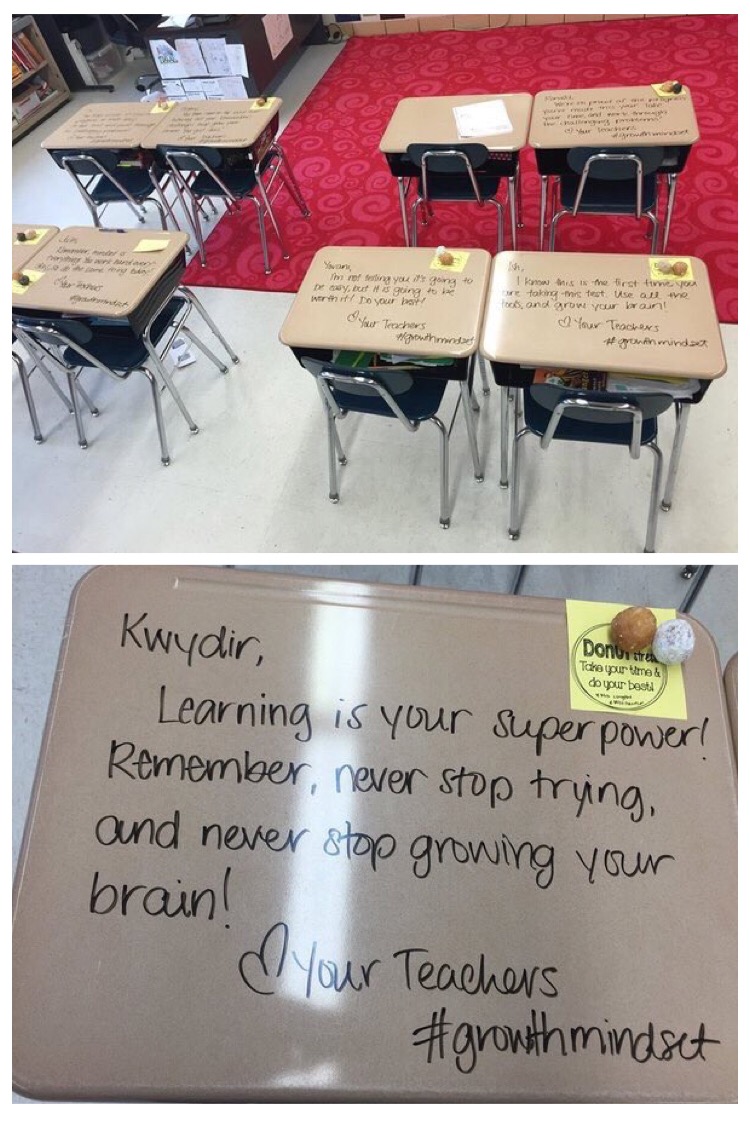 We're proud of the progress
you've made this year. Take
your time, and work through
the challenging problems!
♡ Your Teachers
#growthmindset
Remember, mindset is
everything. You work hard every
so do the same thing today!
♡ Your Teachers
#growthmindset
I'm not telling you it's going to
be easy, but it is going to be
worth it! Do your best!
♡ Your Teachers
#growthmindset
I know this is the first time you
are taking this test. Use all the
tools, and grow your brain!
♡ Your Teachers
#growthmindset
Kwydir,
Learning is your superpower!
Remember, never stop trying,
and never stop growing your
brain!
♡ Your Teachers
#growthmindset
Take your time &
do your best!